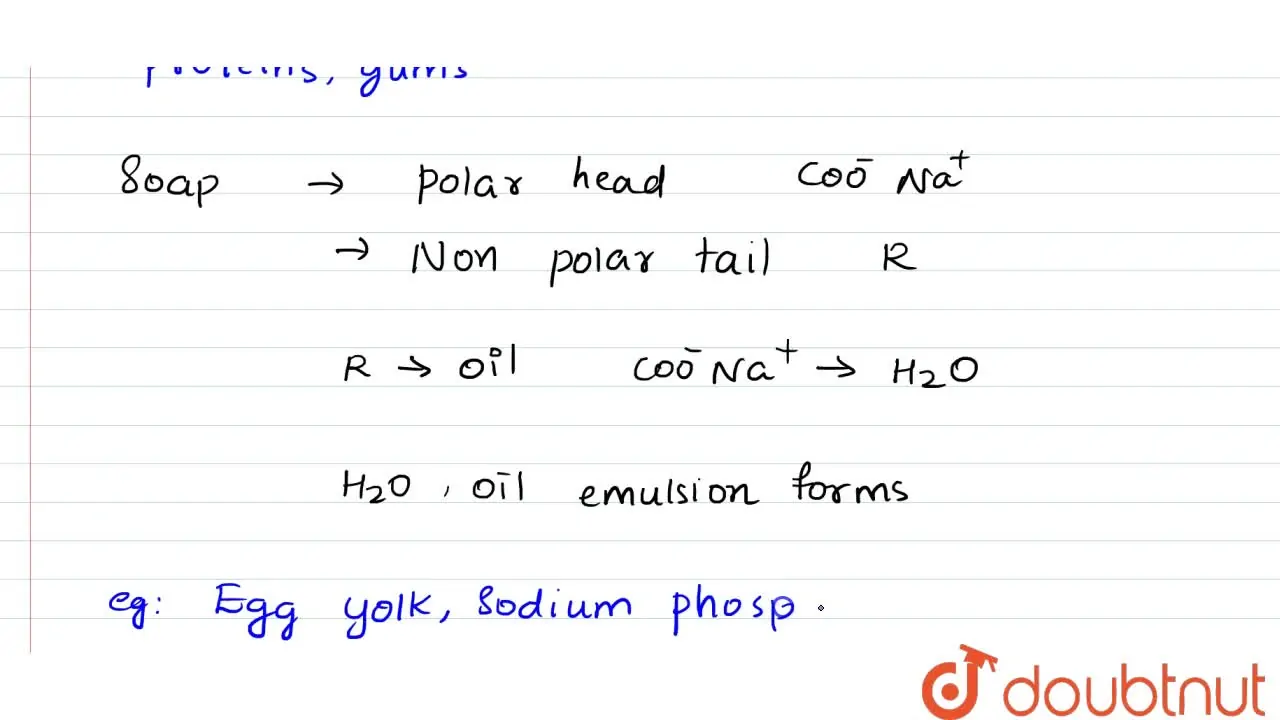 Soap → polar head COO⁻ Na⁺
→ Non polar tail R
R → oil COO⁻Na⁺ → H₂O
H₂O, oil emulsion forms
eg: Egg yolk, Sodium phosp
doubtnut